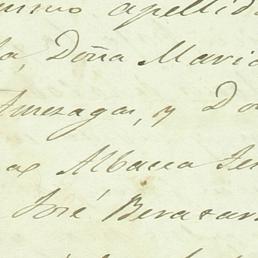 mismo apellido
la, Doña Maria
Amezaga, y Do
Albacea Te
José Berasar